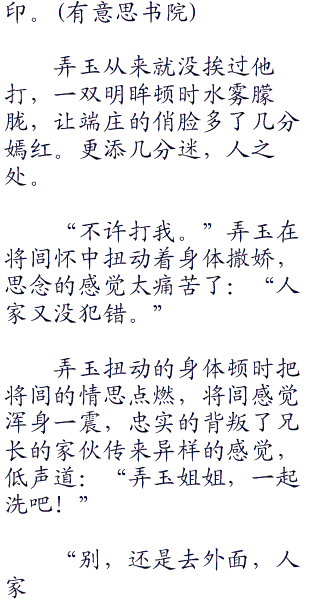 印。(有意思书院)
弄玉从来就没挨过他
打，一双明眸顿时水雾朦
胧，让端庄的俏脸多了几分
嫣红。更添几分迷，人之
处。
“不许打我。”弄玉在
将闾怀中扭动着身体撒娇，
思念的感觉太痛苦了：“人
家又没犯错。”
弄玉扭动的身体顿时把
将闾的情思点燃，将闾感觉
浑身一震，忠实的背叛了兄
长的家伙传来异样的感觉，
低声道：“弄玉姐姐，一起
洗吧！”
“别，还是去外面，人
家